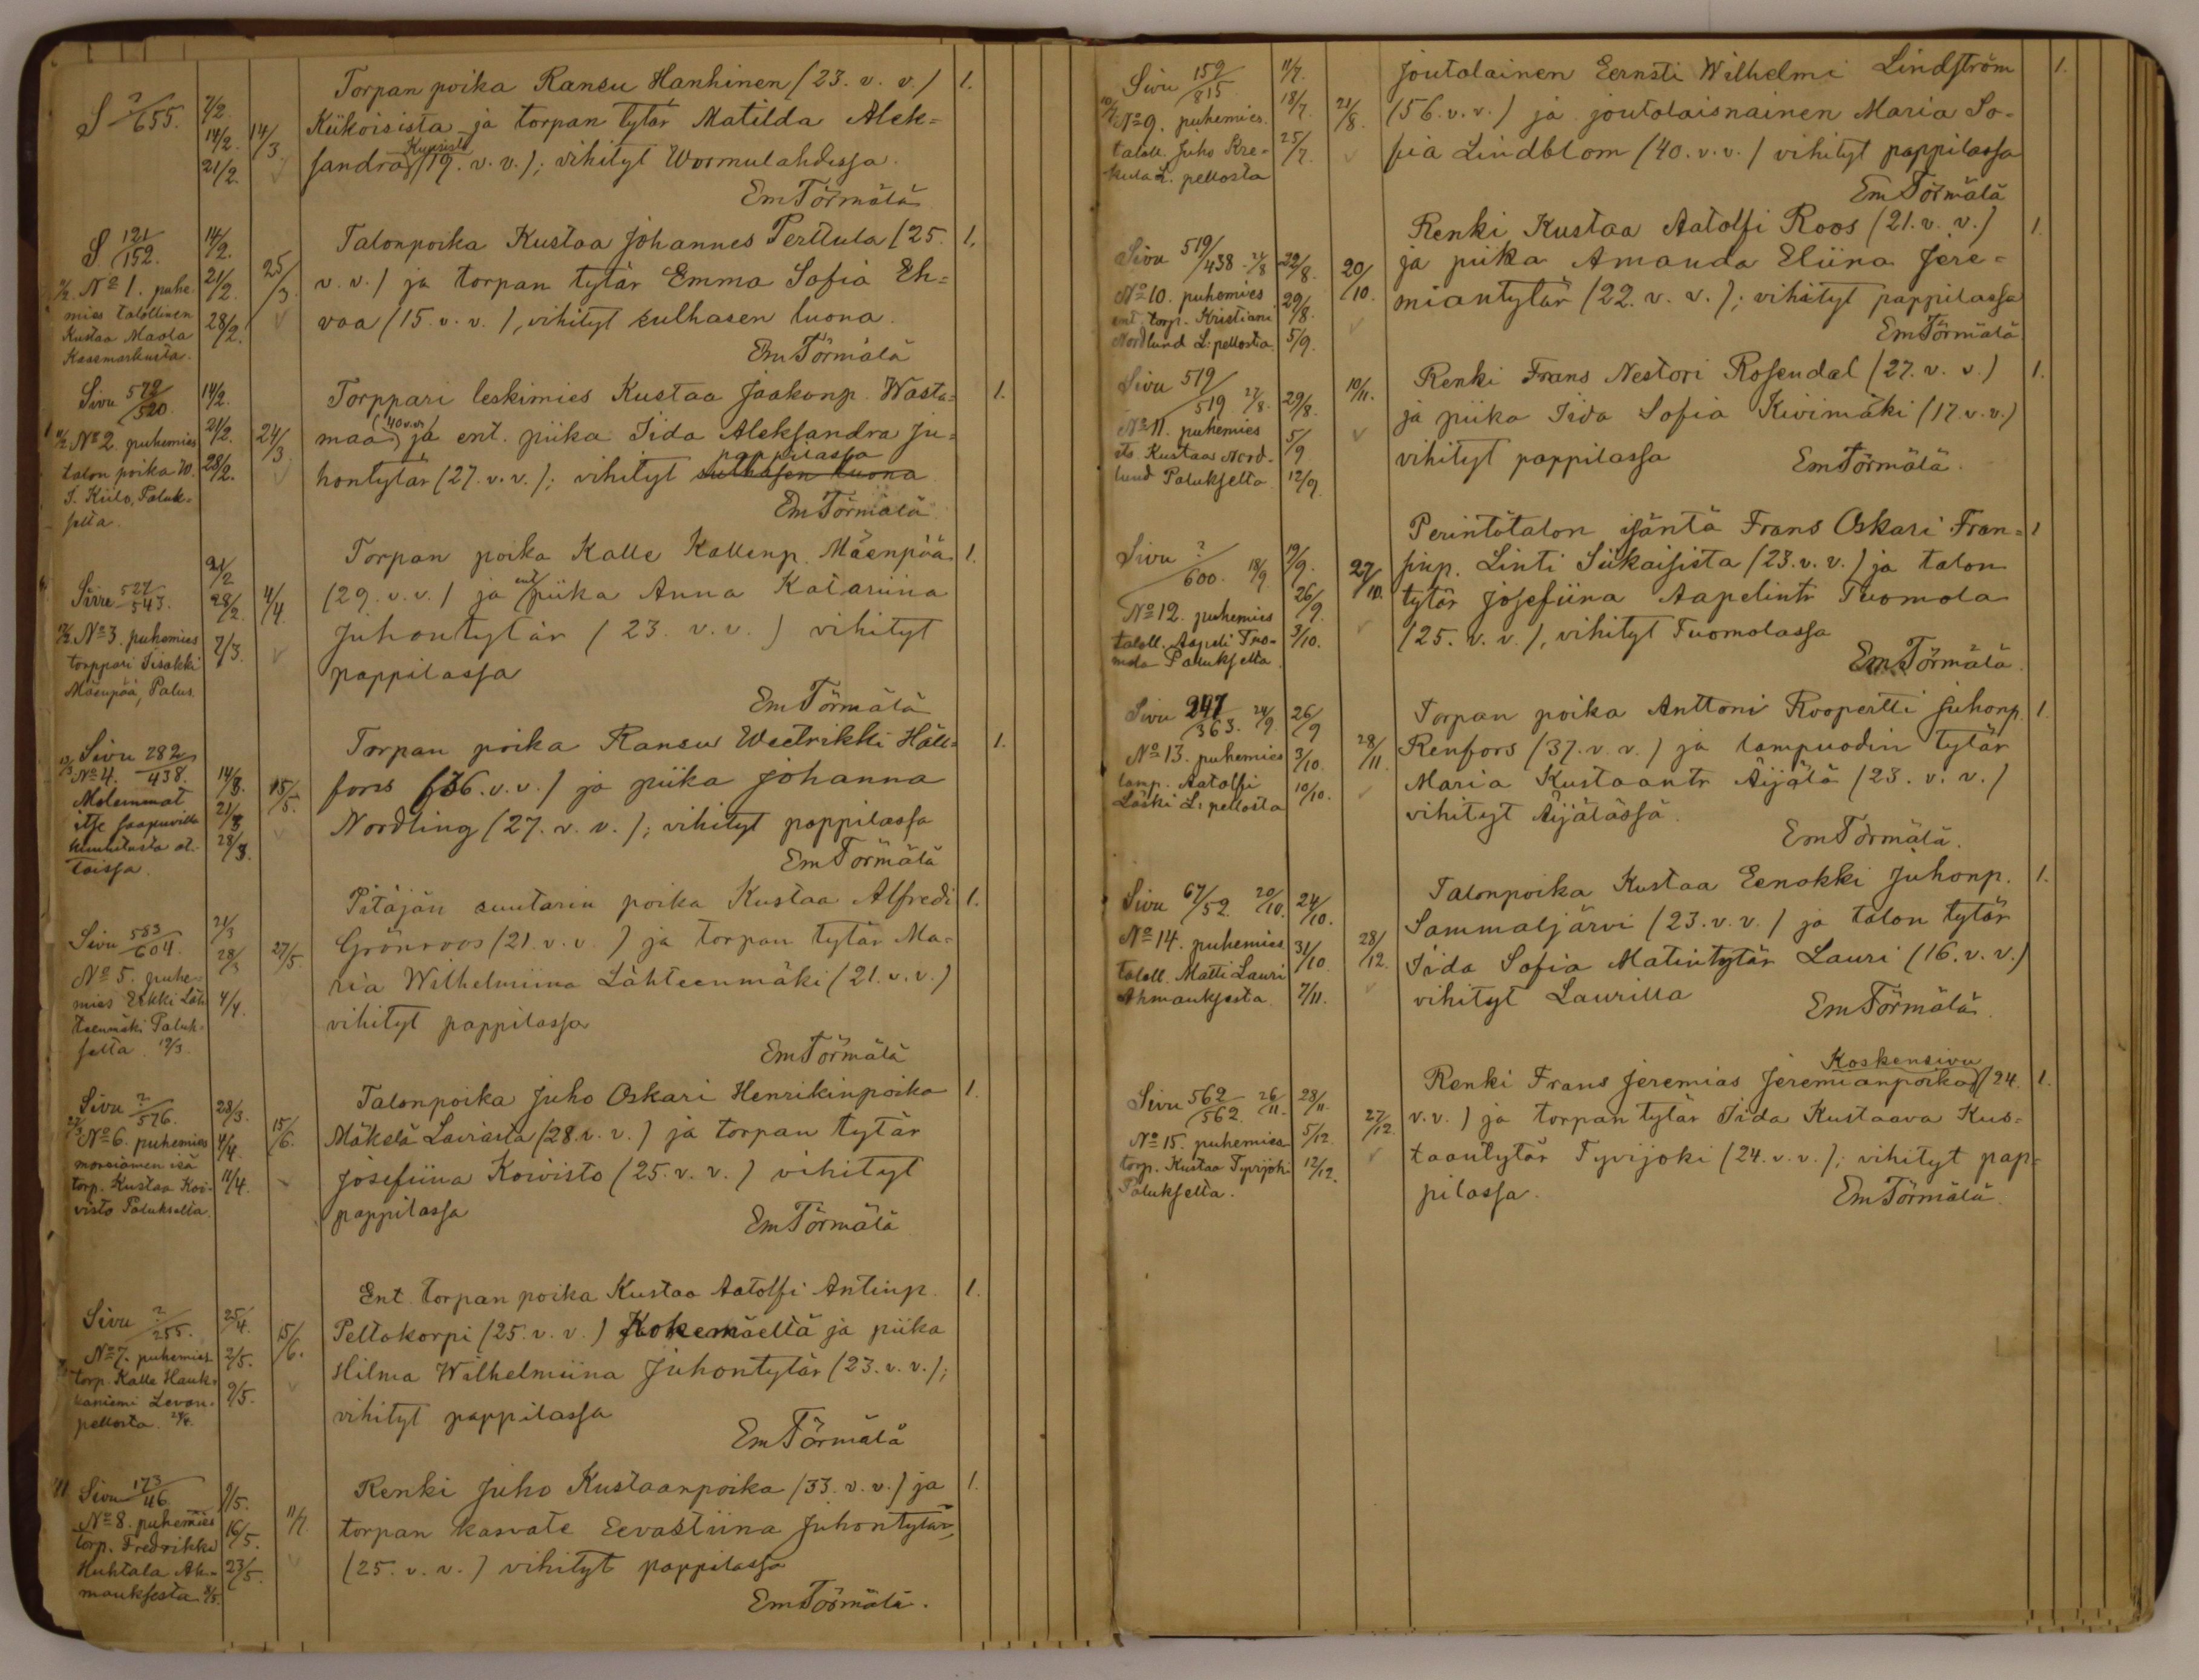 S ?/655.
7/2.
14/2.
21/2.
14/3.
Torpan poika Ransu Hanhinen (23. v. v.) 1.
Kiikoisista ja torpan tytär Matilda Alek=
Kuusisto
sandra (19. v. v.); vihityt Wormulahdessa.
Em Törmälä
S 121/152.
No 1. puhe
mies talollinen
Kustaa Maola
Kasemarkusta.
14/2.
21/2.
28/2.
25/3.
Talonpoika Kustaa Johannes Perttula (25. 1.
v. v.) ja torpan tytär Emma Sofia Eh=
voa (15. v. v.), vihityt sulhasen luona.
Em Törmälä
Sivu 578/520.
No 2. puhemies
talon poika W.
J. Kiilo, Paluk=
selta.
14/2.
21/2.
28/2.
24/3.
Torppari leskimies Kustaa Jaakonp. Wasta= 1.
(40 v.v.)
maa ja ent. piika Iida Aleksandra Ju=
pappilassa
hontytär (27. v. v.); vihityt sulhasen luona
Em Törmälä
Sivu 527/543.
No 3. puhemies
torppari Iisakki
Mäenpää, Palus.
21/2
28/2.
7/3.
4/4.
Torpan poika Kalle Kallenp. Mäenpää 1.
(29. v. v.) ja ent piika Anna Katariina
Juhontytär (23. v. v.) vihityt
pappilassa
Em Törmälä
Sivu 282/438.
No 4.
Molemmat
itse saapuvilla
kuulutusta ot=
taissa.
14/3.
21/3
28/3.
15/5.
Torpan poika Ransu Weetrikki Häll= 1.
fors (36. v. v.) ja piika Johanna
Nordling (27. v. v.); vihityt pappilassa
Em Törmälä
Sivu 583/604.
No 5. puhe=
mies Erkki Läh
teenmäki Paluk=
selta. 19/3.
21/3
28/3
4/4.
27/5.
Pitäjän suutarin poika Kustaa Alfredi 1.
Grönroos (21. v. v.) ja torpan tytär Ma=
ria Wilhelmiina Lähteenmäki (21. v. v.)
vihityt pappilassa
Em Törmälä
Sivu ?/576.
No 6. puhemies
morsiamen isä
torp. Kustaa Koi=
visto Palukselta.
28/3.
4/4.
11/4.
15/6.
Talonpoika Juho Oskari Henrikinpoika 1.
Mäkelä Laviasta (28. v. v.) ja torpan tytär
Josefiina Koivisto (25. v. v.) vihityt
pappilassa
Em Törmälä
Sivu ?/255.
No 7. puhemies
torp. Kalle Hauk=
kaniemi Levan=
pellosta. 24/4.
25/4.
2/5.
9/5.
15/6.
Ent torpan poika Kustaa Aatolfi Antinp. 1.
Peltokorpi (25. v. v.) Kokemäeltä ja piika
Hilma Wilhelmiina Juhontytär (23. v. v.);
vihityt pappilassa
Em Törmälä
Sivu 173/46.
No 8. puhemies
torp. Fredrikki
Huhtala Ah=
mauksesta 8/5.
9/5.
16/5.
23/5.
11/7.
Renki Juho Kustaanpoika (33. v. v.) ja 1.
torpan kasvate Eevastiina Juhontytär,
(25. v. v.) vihityt pappilassa
Em Törmälä.
Sivu 159/815.
No 9. puhemies.
taloll. Juho Kre=
kula L. pellosta
11/7.
18/7.
25/7.
21/8.
Joutolainen Eernsti Wilhelmi Lindström 1.
(56. v. v.) ja joutolaisnainen Maria So=
fia Lindblom (40. v. v.) vihityt pappilassa
Em Törmälä
Sivu 519/438. 21/8
No 10. puhemies
ent. torp. Kristian
Nordlund L: pellosta.
22/8.
29/8.
5/9.
20/10.
Renki Kustaa Aatolfi Roos (21. v. v.) 1.
ja piika Amanda Eliina Jere=
miantytär (22. v. v.); vihityt pappilassa
Em Törmälä
Sivu 519/519 27/8.
No 11. puhemies
its. Kustaa Nord=
lund Palukselta
29/8.
5/9
12/9.
10/11.
Renki Frans Nestori Rosendal (27. v. v.) 1.
ja piika Iida Sofia Kivimäki (17. v. v.)
vihityt pappilassa Em Törmälä.
Sivu ?/600. 18/9
No 12. puhemies
taloll. Aapeli Tuo=
mola Palukselta.
19/9.
26/9.
3/10.
27/10.
Perintötalon isäntä Frans Oskari Fran= 1
sinp. Linti Siikaisista (23. v. v.) ja talon
tytär Josefiina Aapelintr Tuomola
(25. v. v.), vihityt Tuomolassa
Em. Törmälä.
Sivu 247/363. 24/9.
No 13. puhemies
lamp. Aatolfi
Läski L: pellosta
26/9
3/10.
10/10.
28/11
Torpan poika Anttoni Roopertti Juhonp. 1.
Renfors (37. v. v.) ja lampuodin tytär
Maria Kustaantr Äijälä (23. v. v.)
vihityt Äijälässä.
Em Törmälä.
Sivu 67/52. 20/10.
No 14. puhemies
taloll. Matti Lauri
Ahmauksesta.
24/10.
31/10
7/11.
28/12.
Talonpoika Kustaa Eenokki Juhonp. 1.
Sammaljärvi (23. v. v.) ja talon tytär
Iida Sofia Matintytär Lauri (16. v. v.)
vihityt Laurilla Em Törmälä.
Sivu 562/562 26/11.
No 15. puhemies
torp. Kustaa Tyvijoki
Palukselta.
28/11.
5/12.
12/12.
27/12.
Koskensivu
Renki Frans Jeremias Jeremianpoika (24. 1.
v. v.) ja torpan tytär Iida Kustaava Kus=
taantytär Tyvijoki (24. v. v.); vihityt pap=
pilassa. Em Törmälä.